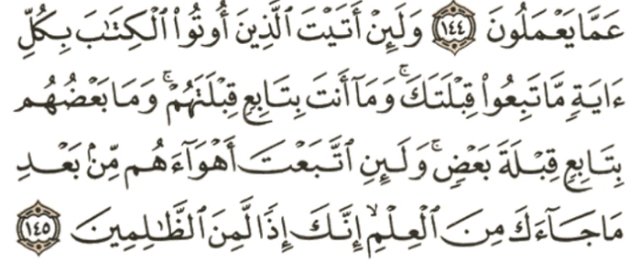 عَمَّا يَعْمَلُونَ ١٤٤ وَلَئِنْ أَتَيْتَ ٱلَّذِينَ أُوتُوا۟ ٱلْكِتَٰبَ بِكُلِّ
ءَايَةٍ مَّا تَبِعُوا۟ قِبْلَتَكَ ۚ وَمَآ أَنتَ بِتَابِعٍ قِبْلَتَهُمْ ۚ وَمَا بَعْضُهُم
بِتَابِعٍ قِبْلَةَ بَعْضٍ ۚ وَلَئِنِ ٱتَّبَعْتَ أَهْوَآءَهُم مِّنۢ بَعْدِ
مَا جَآءَكَ مِنَ ٱلْعِلْمِ ۙ إِنَّكَ إِذًا لَّمِنَ ٱلظَّٰلِمِينَ ١٤٥